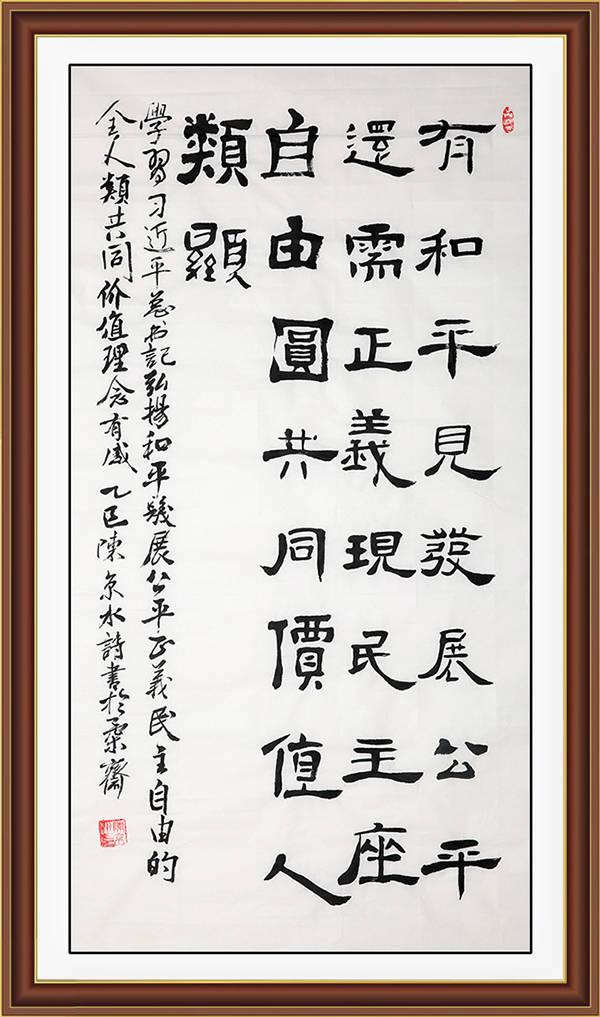 有和平見發展公平
還需正義現民主座
自由圓共同價值人
類顯
學習习近平总书記弘揚和平發展公平正義民主自由的
全人類共同价值理念有感 乙巳陳京水詩書於柔齋